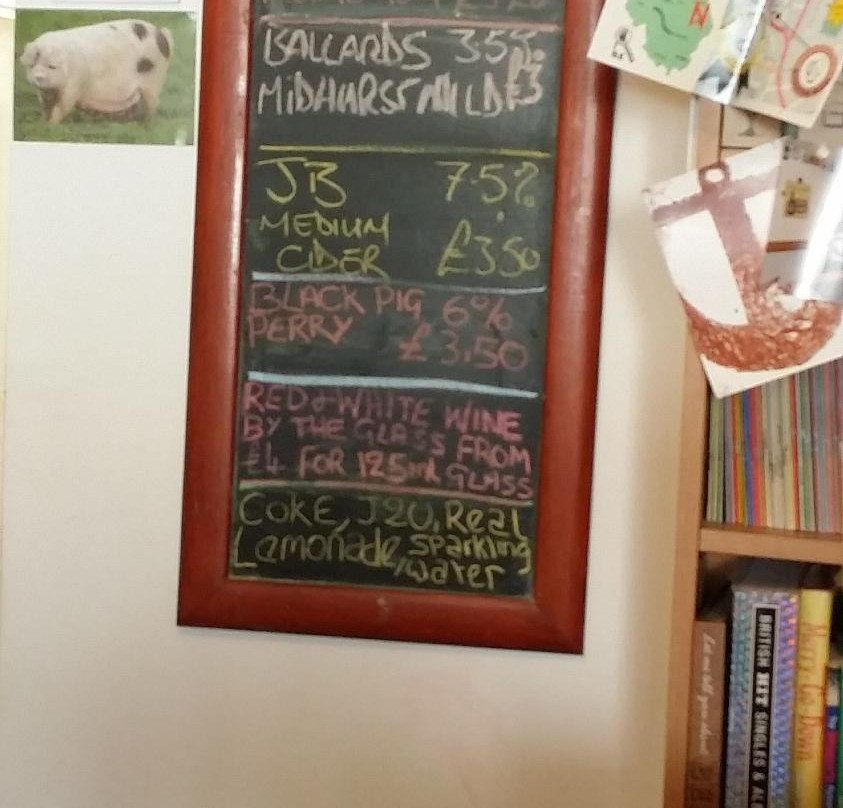 BALLARDS 3.5%
MIDHURST MILD £3
JB 7.5%
MEDIUM
CIDER £3.50
BLACK PIG 6%
PERRY £3.50
RED & WHITE WINE
BY THE GLASS FROM
£4 FOR 125ml GLASS
COKE, J2O, Real
Lemonade, sparkling
water
N
BRITISH HIT SINGLES & AL
Merry Go Down